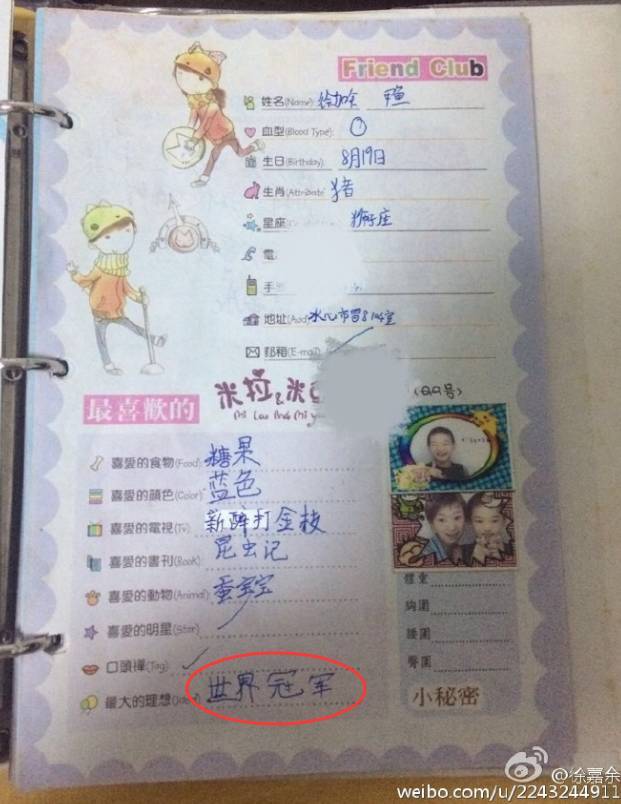 Friend Club
姓名(Name): 徐加余
血型(Blood Type): O
生日(Birthday): 8月19日
生肖(Attribute): 猪
星座 狮子座
電
手
地址(Add)
郵箱(E-mail)
最喜歡的 米拉&米
(QQ号)
喜愛的食物(Food): 糖果
喜愛的顏色(Color): 蓝色
喜愛的電視(TV): 新醉打金枝
喜愛的書刊(Book): 昆虫记
喜愛的動物(Animal): 蚕宝宝
喜愛的明星(Star):
口頭禪(Tag):
最大的理想 世界冠军
體重
胸圍
腰圍
臀圍
小秘密
@徐嘉余
weibo.com/u/2243244911